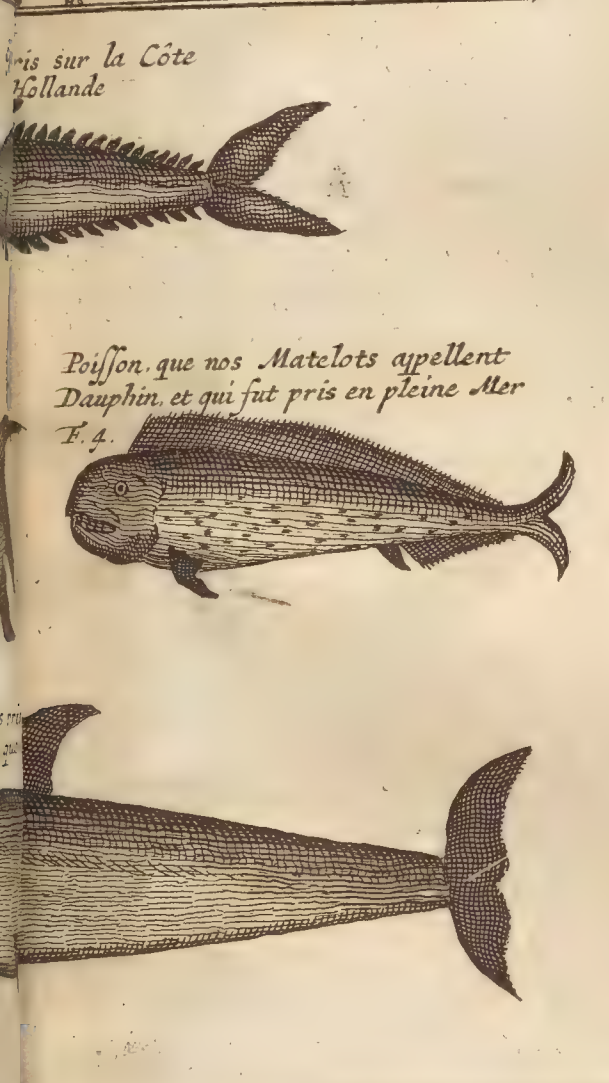 sur la Côte
Hollande
Poiſſon, que nos Matelots appellent
Dauphin, et qui fut pris en pleine Mer
F. 4.